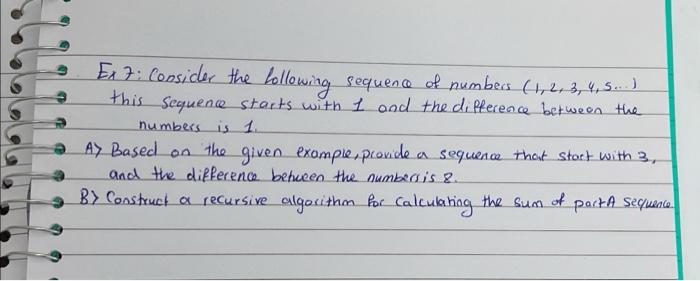 Ex 7: Consider the following sequence of numbers (1, 2, 3, 4, 5...)
this sequence starts with 1 and the difference between the
numbers is 1.
A) Based on the given example, provide a sequence that start with 3,
and the difference between the numbers is 8.
B) Construct a recursive algorithm for calculating the sum of part A sequence